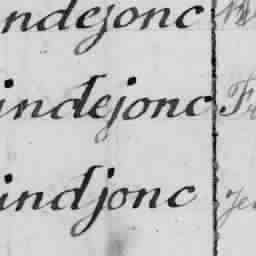 indejonc
indejonc
indjonc